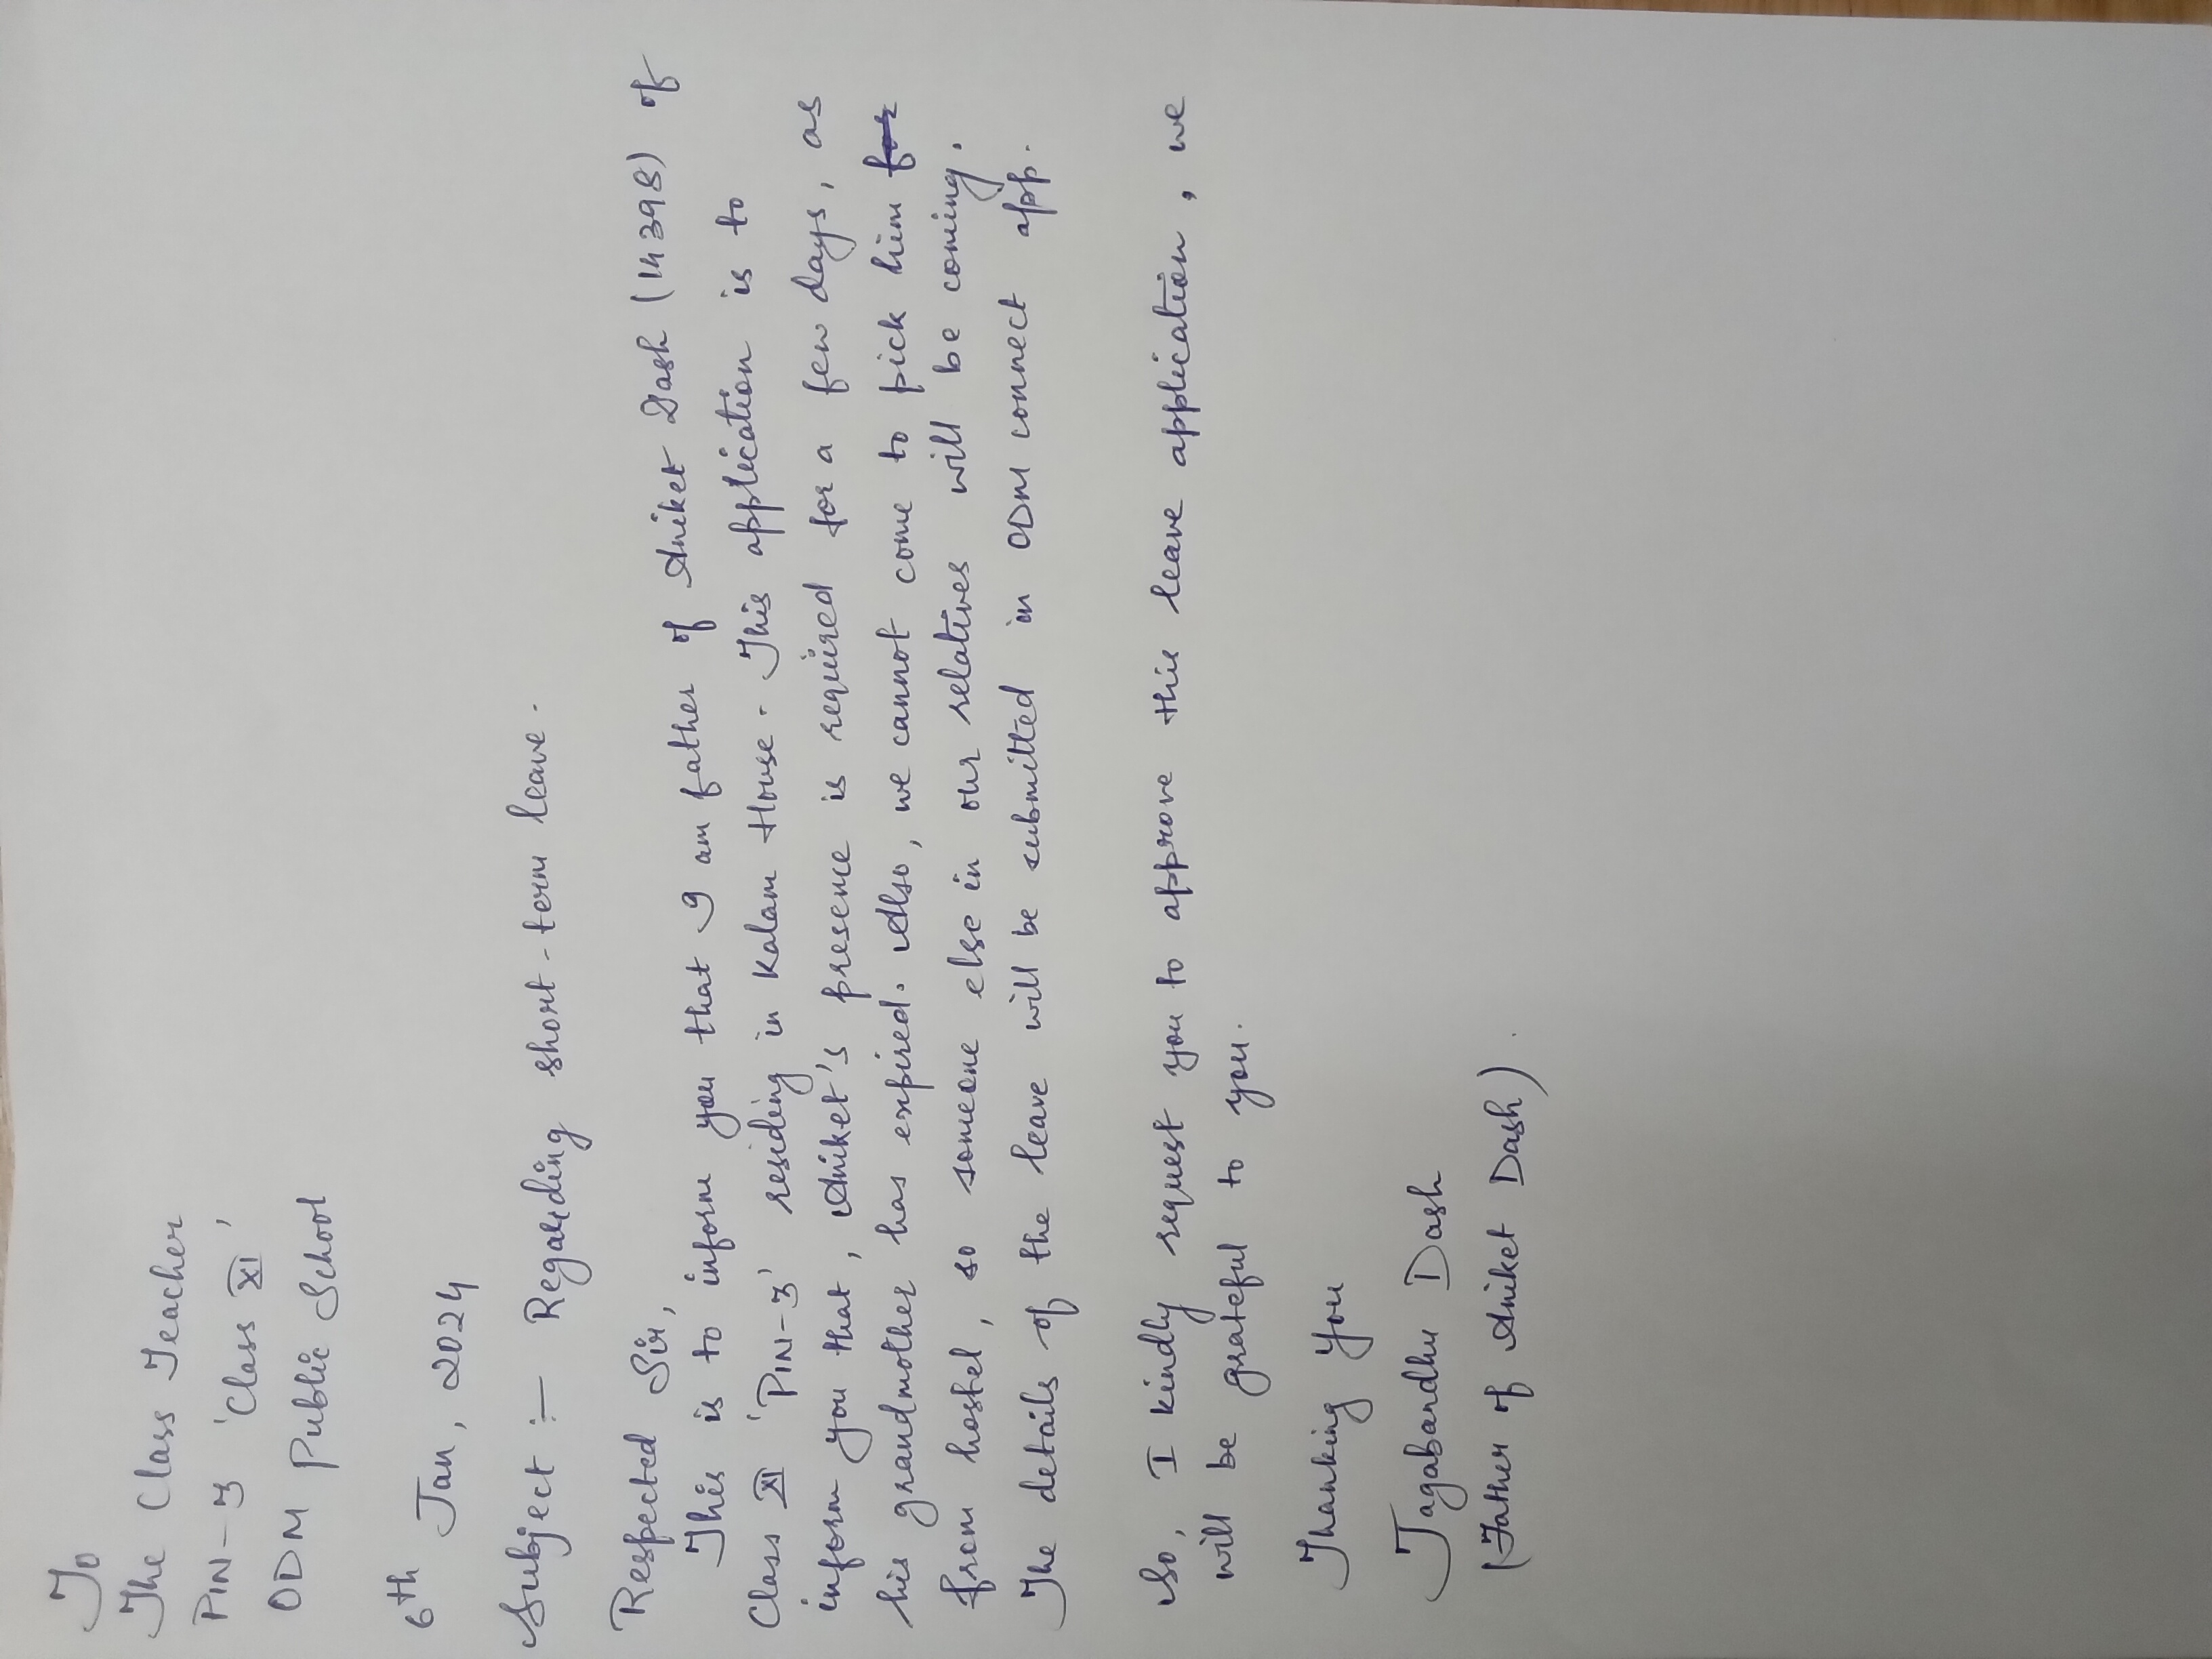 To
The Class Teacher
PIN-3 'Class XI'
ODM Public School
6th Jan, 2024
Subject :- Regarding short-term leave.
Respected Sir,
This is to inform you that I am father of Aniket Dash (14398) of
Class XI 'PIN-3' residing in Kalam House. This application is to
inform you that, Aniket's presence is required for a few days, as
his grandmother has expired. Also, we cannot come to pick him for
from hostel, so someone else in our relatives will be coming.
The details of the leave will be submitted in ODM connect app.
So, I kindly request you to approve this leave application, we
will be grateful to you.
Thanking you
Jagabandhu Dash
(Father of Aniket Dash).